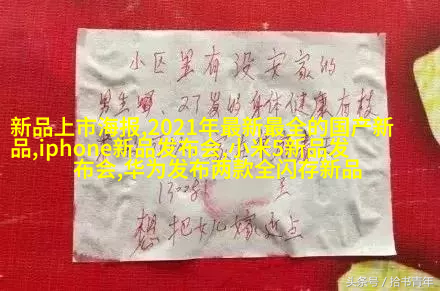 小区里有没安家的
男生吗 27岁的身体健康有枝
新品上市海报,2021年最新最全的国产新
品,iphone新品发布会,小米5新品发
布会,华为发布两款全闪存新品
想把女儿嫁近点
头条号 / 拾书青年